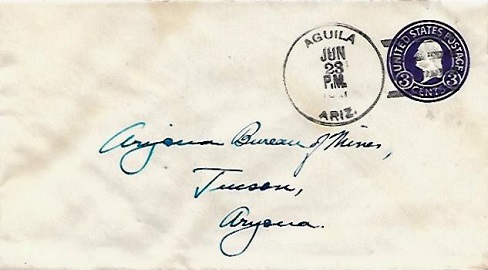 AGUILA
JUN
23
P.M.
ARIZ.
UNITED STATES POSTAGE
3 CENTS 3
Arizona Bureau of Mines,
Tucson,
Arizona.